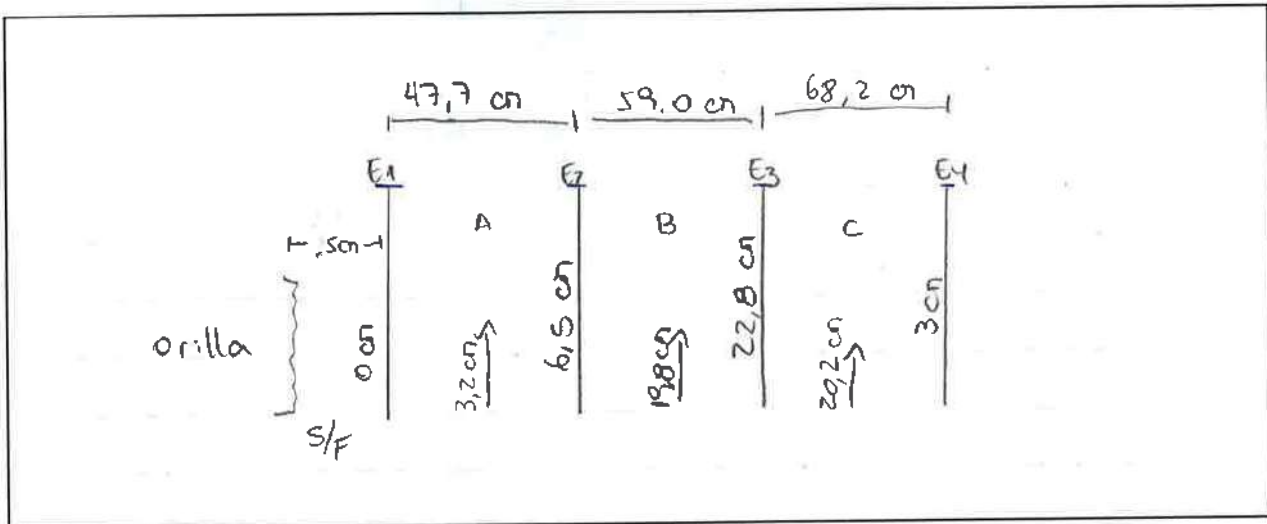 47,7 cm 59.0 cm 68,2 cm
E1 E2 E3 E4
A B C
.5cm
Orilla
0 cm 3,2 cm 6,5 cm 19,8 cm 22,8 cm 20,2 cm 3 cm
S/F